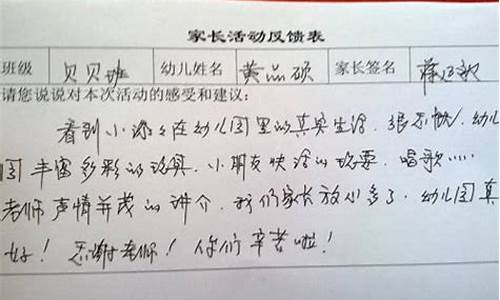 家长活动反馈表
班级 贝贝班 幼儿姓名 黄品硕 家长签名
请您说说对本次活动的感受和建议:
看到小家在幼儿园里的真实生活,很不错,幼儿
园丰富多彩的玩具,小朋友快活的玩耍,唱歌……
老师声情并茂的讲介,我们家长放心多了,幼儿园真
好!感谢老师!你们辛苦啦!